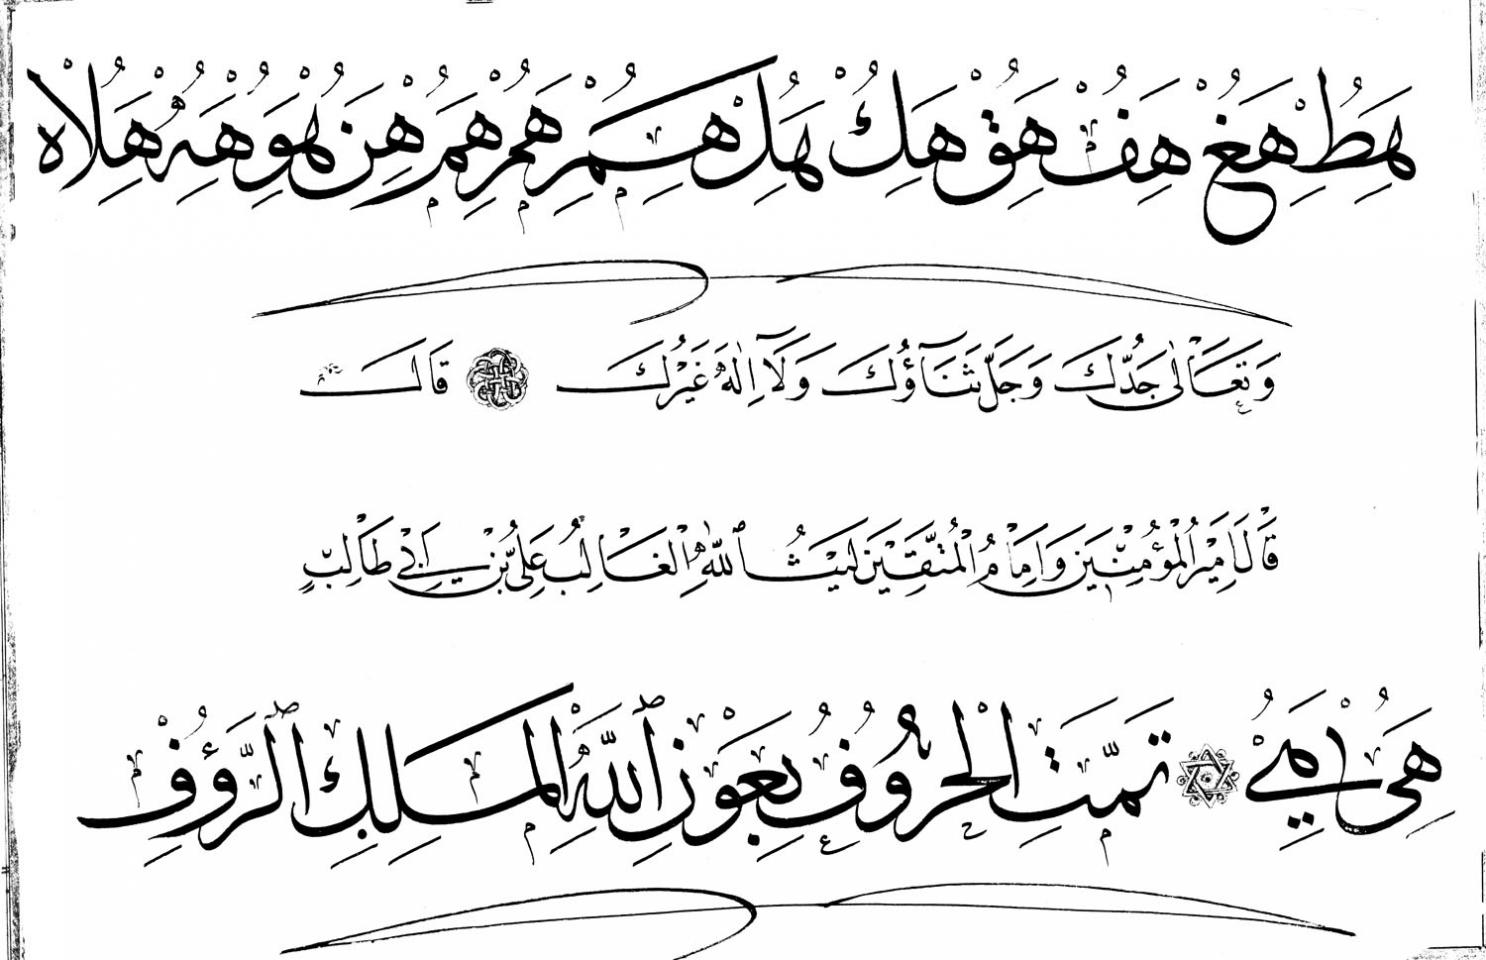 هَطُ هِغَ هَفُ هِقَ هَكُ هِلُ هَمُ هِمَ هُمَ هِنَ هُوَ هِهَ هُلَاهِ
وَتَعَالٰى جَدُّكَ وَجَلَّ ثَنَآؤُكَ وَلَآ اِلٰهَ غَيْرُكَ قَالَ
قَالَ اَمِيرُ الْمُؤْمِنِينَ وَاِمَامُ الْمُتَّقِينَ لَيْثُ اللّٰهِ الْغَالِبُ عَلِيُّ بْنُ اَبِي طَالِبٍ
هَيُ تَمَّتِ الْحُرُوفُ بِعَوْنِ اللّٰهِ الْمَلِكِ الرَّؤُفِ